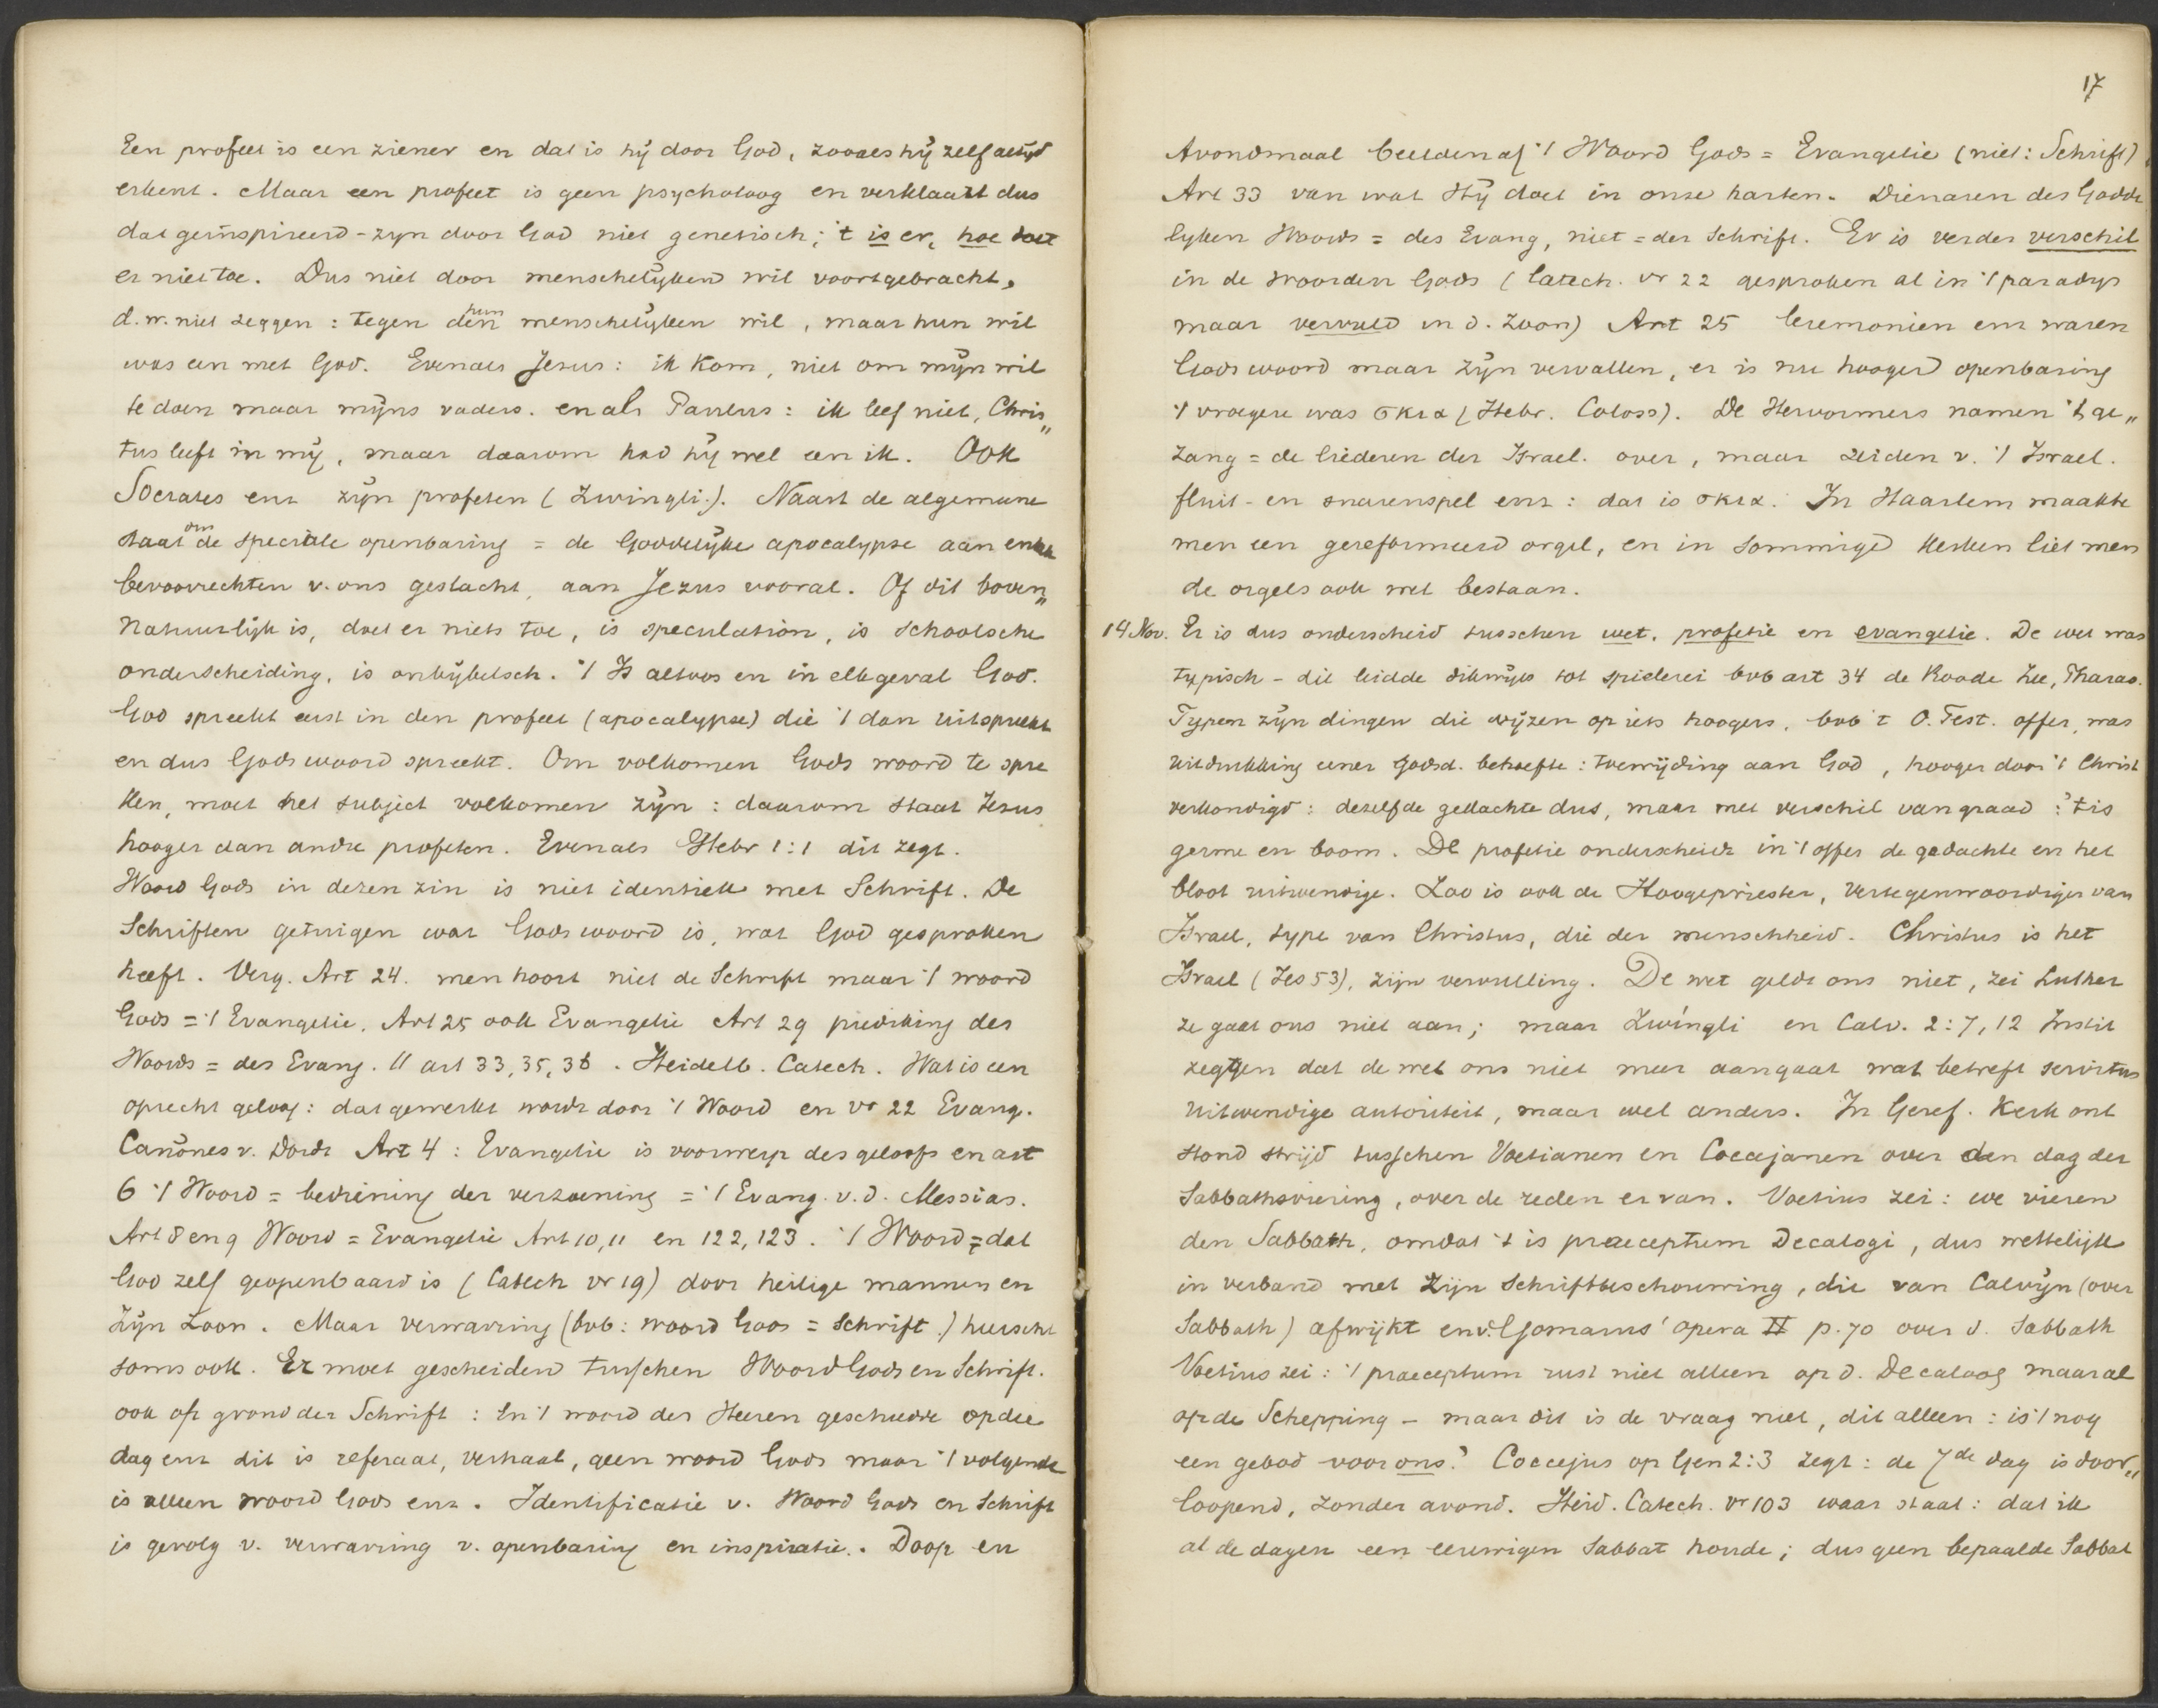 Een profeet is een ziener en dat is hij door God, zooals hij zelf altijd
erkent. Maar een profeet is geen psycholoog en verklaart dus
dat geïnspireerd-zyn door God niet genetisch; 't is er, hoe doet
er niet toe. Dus niet door menschelijken wil voortgebracht,
d.w. niet zeggen: tegen den hun menschelijken wil, maar hun wil
was een met God. Evenals Jesus: ik kom, niet om mijn wil
te doen maar mijns vaders. en als Paulus: ik leef niet, Chris„
tus leeft in mij, maar daarom had hij wel een ik. Ook
Socrates enz zijn profeten (Zwingli.). Naast de algemeene
staat dm de speciale openbaring = de Goddelijke apocalypse aan enkele
bevoorrechten v. ons geslacht, aan Jezus vooral. Of dit boven„
natuurlijk is, doet er niets toe, is speculation, is schoolsche
onderscheiding, is onbijbelsch. 't Is altoos en in elk geval God.
God spreekt eerst in den profeet (apocalypse) die 't dan uitspreekt
en dus Gods woord spreekt. Om volkomen Gods woord te spre
ken, moet het subject volkomen zijn: daarom staat Jesus
hooger dan andre profeten. Evenals Hebr 1:1 dit zegt.
Woord Gods in dezen zin is niet identiek met Schrift. De
Schriften getuigen wat Gods woord is, wat God gesproken
heeft. Verg. Art 24. men hoort niet de Schrift maar 't woord
Gods = 't Evangelie. Art 25 ook Evangelie Art 29 prediking des
Woords = des Evang. 11 art 33, 35, 36. Heidelb. Catech. Wat is een
oprecht geloof: dat gewerkt wordt door 't Woord en vr 22 Evang.
Canönes v. Dordt Art 4: Evangelie is voorwerp des geloofs en art
6 't Woord = bediening der verzoening = 't Evang. v. d. Messias.
Art 8 en 9 Woord = Evangelie Art 10, 11 en 122, 123. 't Woord = dat
God zelf geopenbaard is (Catech vr 19) door heilige mannen en
Zijn Zoon. Maar verwarring (bvb: woord Gods = Schrift.) heerscht
soms ook. Er moet gescheiden tusschen Woord Gods en Schrift.
ook op grond der Schrift: En 't woord des Heeren geschiedde op die
dag enz dit is referaat, verhaal, geen woord Gods maar 't volgende
is alleen woord Gods enz. Identificatie v. Woord Gods en Schrift
is gevolg v. verwarring v. openbaring en inspiratie. Doop en
17
Avondmaal beelden af 't Woord Gods = Evangelie (niet: Schrift)
Art 33 van wat Hij doet in onze harten. Dienaren des Godde
lyken Woords = des Evang, niet = der Schrift. Er is verder verschil
in de woorden Gods (Catech. vr 22 gesproken al in 't paradys
maar vervuld in d. Zoon) Art 25 Ceremonien enz waren
Gods woord maar zijn vervallen, er is nu hooger openbaring
't vroegere was σκια (Hebr. Coloss). De Hervormers namen 't ge„
zang = de liederen der Israel. over, maar zeiden v. 't Israel.
fluit- en snarenspel enz: dat is σκια. In Haarlem maakte
men een gereformeerd orgel, en in sommige kerken liet men
de orgels ook wel bestaan.
14 Nov. Er is dus onderscheid tusschen wet, profetie en evangelie. De wet was
typisch - dit leidde dikwijls tot spielerei bvb art 34 de Roode Zee, Pharao.
Typen zijn dingen die wijzen op iets hoogers. bvb 't O. Test. offer, was
uitdrukking eener godsd. behoefte: toewijding aan God, hooger door 't Christ
verkondigd: dezelfde gedachte dus, maar met verschil van graad: 't is
germe en boom. De profetie onderscheidt in 't offer de gedachte en het
bloot uitwendige. Zoo is ook de Hoogepriester, vertegenwoordiger van
Israel, type van Christus, die der menschheid. Christus is het
Israel (Jes 53), zijn vervulling. De wet geldt ons niet, zei Luther
ze gaat ons niet aan; maar Zwingli en Calv. 2:7, 12 Instit
zeggen dat de wet ons niet meer aangaat wat betreft servitus
uitwendige autoriteit, maar wel anders. In Geref. Kerk ont
stond strijd tusschen Voetianen en Coccejanen over den dag der
Sabbathsviering, over de reden ervan. Voetius zei: we vieren
den Sabbath, omdat 't is praeceptum Decalogi, dus wettelijk
in verband met zijn Schriftbeschouwing, die van Calvijn (over
Sabbath) afwijkt en v. Gomarus' opera II p. 70 over d. Sabbath
Voetius zei: 't praeceptum rust niet alleen op d. Decaloog maar al
op de Schepping - maar dit is de vraag niet, dit alleen: is 't nog
een gebod voor ons? Coccejus op Gen 2:3 zegt: de 7de dag is door„
loopend, zonder avond. Heid. Catech. vr 103 waar staat: dat ik
al de dagen een eeuwigen Sabbat houde; dus geen bepaalde Sabbat